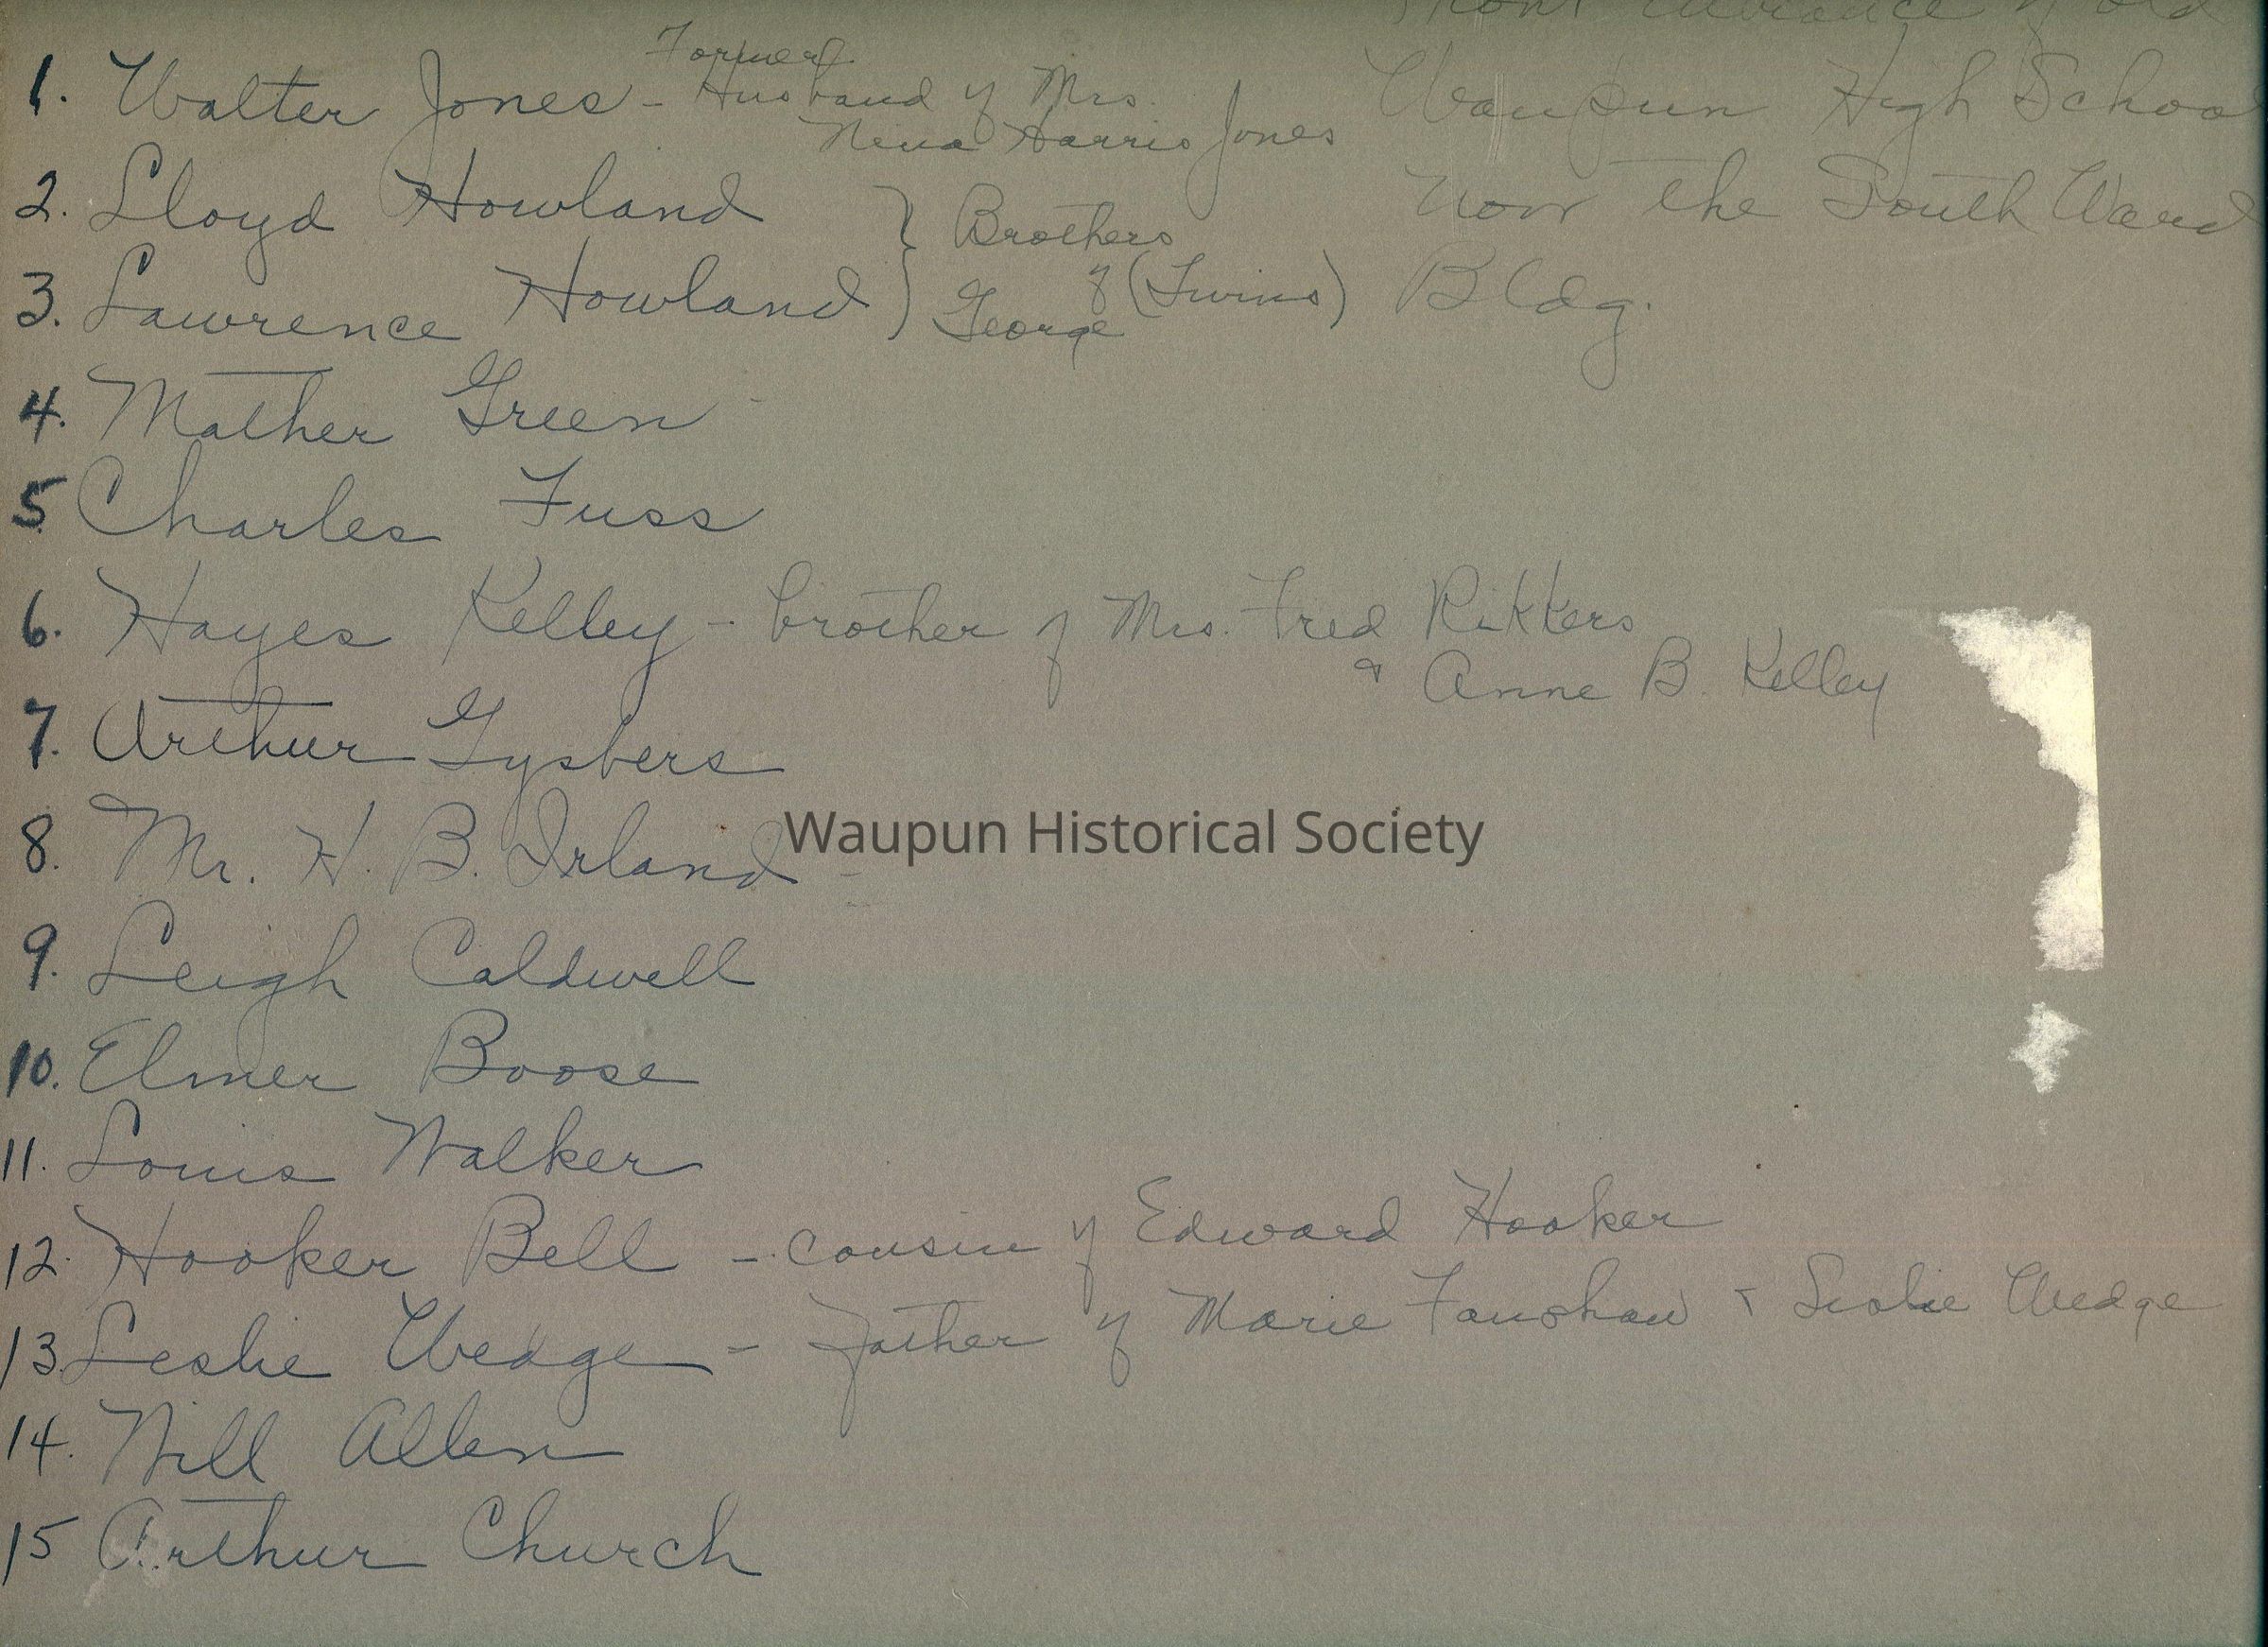 Front entrance of old
Waupun High School
now the South Ward
Bldg.
1. Walter Jones - Former Husband of Mrs.
Nina Harris Jones
2. Lloyd Howland } Brothers
3. Lawrence Howland } of (Twins)
George
4. Mather Green -
5. Charles Fuss
6. Hayes Kelley - brother of Mrs. Fred Rikkers
& Anne B. Kelley
7. Arthur Gysbers
8. Mr. H. B. Irland -
Waupun Historical Society
9. Leigh Caldwell
10. Elmer Boose
11. Louis Walker
12. Hooker Bell - cousin of Edward Hooker
13. Leslie Wedge - Father of Marie Fanshaw & Leslie Wedge
14. Will Allen
15 Arthur Church